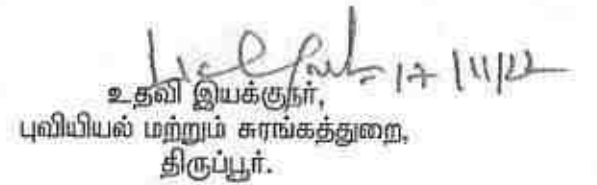 17/11/22
உதவி இயக்குநர்,
புவியியல் மற்றும் சுரங்கத்துறை,
திருப்பூர்.